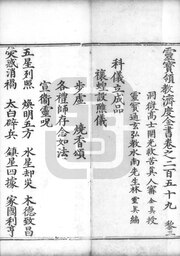 靈寶領教濟度金書卷之二百五十九
洞微高士開光救苦真人甯全真授
靈寶通玄弘教水南先生林靈真編
科儀立成品
禳蝗設醮儀
步虛 燒香頌
各禮師存念如法
宣衛靈呪
五星列照 煥明五方 水星却災 木德致昌
熒惑消禍 太白辟兵 鎮星四據 家國利亨